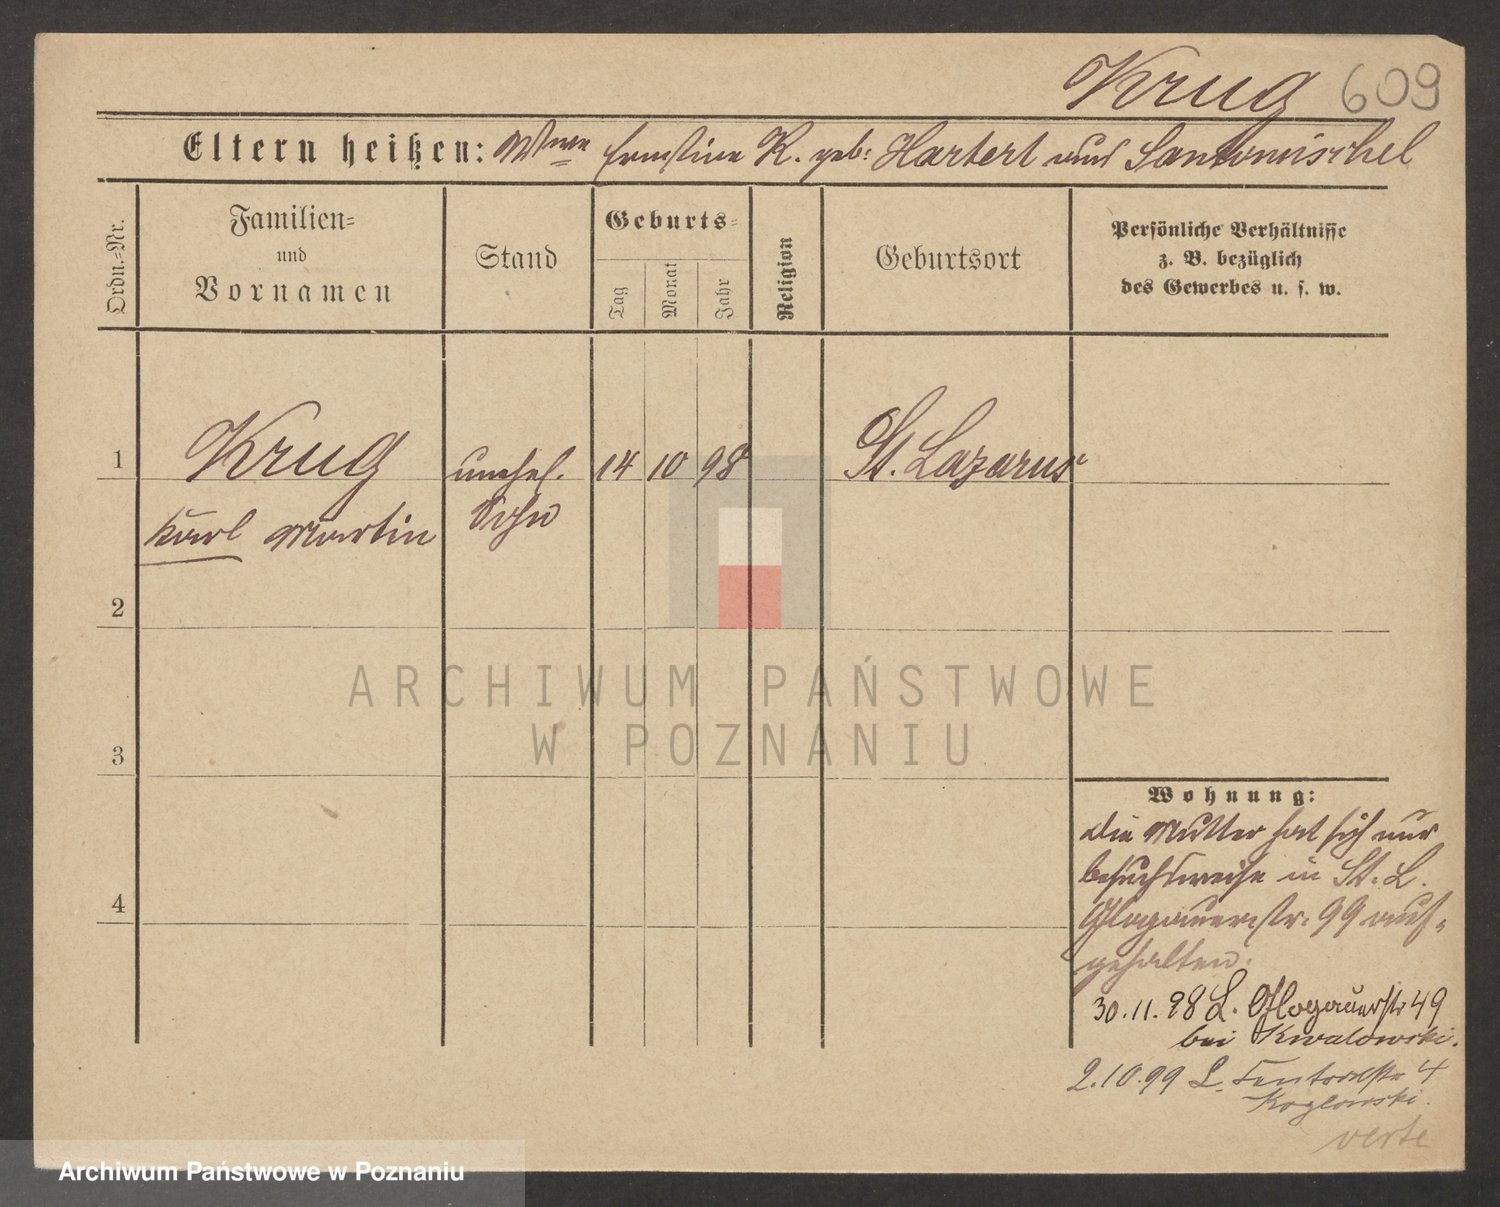 Krug 609
Eltern heißen: Wwe Ernstine K. geb: Hartert aus Santomischel
Ordn.-Nr.
Familien-
und
Vornamen
Stand
Geburts-
Tag
Monat
Jahr
Religion
Geburtsort
Persönliche Verhältnisse
z. B. bezüglich
des Gewerbes u. s. w.
1 Krug unehel. 14 10 98 St. Lazarus
Karl Martin Sohn
2
3
4
Wohnung:
die Mutter hat sich nur
besuchsweise in St. L.
Glogauerstr. 99 auf-
gehalten.
30.11.98 L. Glogauerstr 49
bei Kwalowski.
2.10.99 L. 4
Kozlowski.
verte
ARCHIWUM PAŃSTWOWE
W POZNANIU
Archiwum Państwowe w Poznaniu